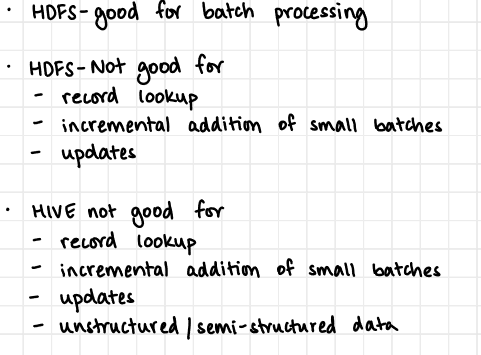 · HDFS- good for batch processing
· HDFS - Not good for
- record lookup
- incremental addition of small batches
- updates
· HIVE not good for
- record lookup
- incremental addition of small batches
- updates
- unstructured / semi-structured data